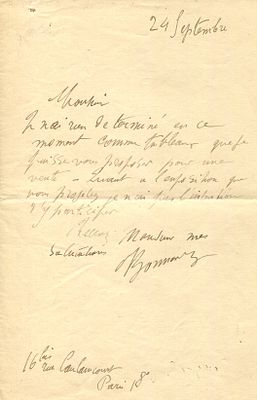 24 Septembre
Monsieur
Je n'ai rien de terminé en ce
moment comme tableaux que je
puisse vous proposer pour une
vente – quant à l'exposition que
vous projetez je n'ai pas l'intention
d'y participer
Recevez Monsieur mes
salutations
PBonnard
16 bis
rue Caulaincourt
Paris 18e